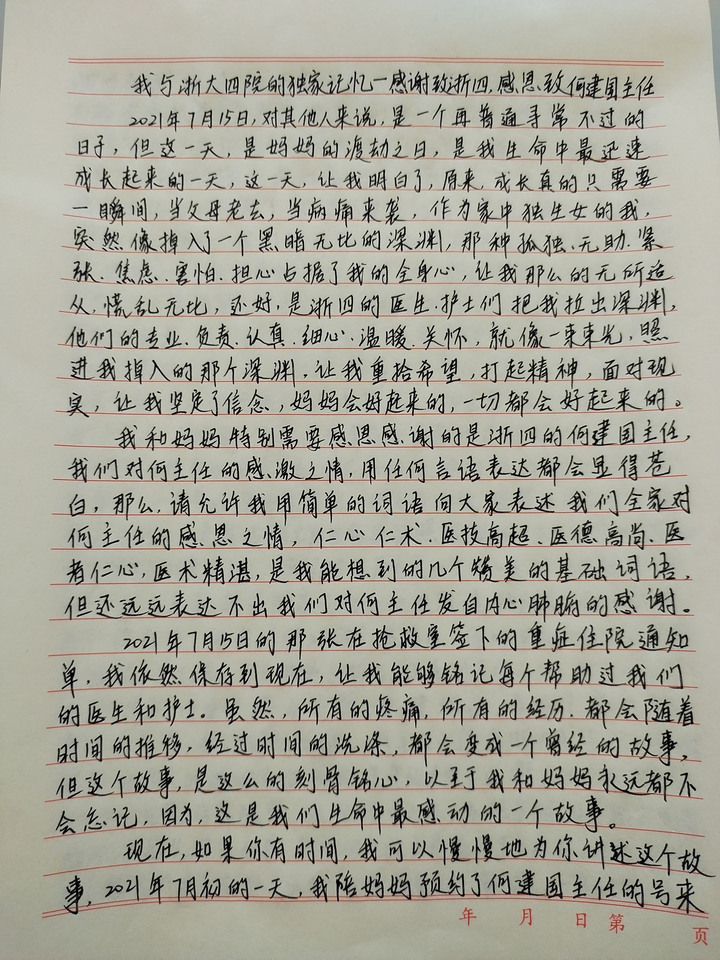 我与浙大四院的独家记忆—感谢致浙四,感恩致何建国主任
2021年7月15日,对其他人来说,是一个再普通寻常不过的
日子,但这一天,是妈妈的渡劫之日,是我生命中最迅速
成长起来的一天,这一天,让我明白了,原来,成长真的只需要
一瞬间,当父母老去,当病痛来袭,作为家中独生女的我,
突然像掉入了一个黑暗无比的深渊,那种孤独、无助、紧
张、焦虑、害怕、担心占据了我的全身心,让我那么的无所适
从,慌乱无比,还好,是浙四的医生、护士们把我拉出深渊,
他们的专业、负责、认真、细心、温暖、关怀,就像一束束光,照
进我掉入的那个深渊,让我重拾希望,打起精神,面对现
实,让我坚定了信念,妈妈会好起来的,一切都会好起来的。
我和妈妈特别需要感恩感谢的是浙四的何建国主任,
我们对何主任的感激之情,用任何言语表达都会显得苍
白,那么,请允许我用简单的词语向大家表述我们全家对
何主任的感恩之情,仁心仁术、医技高超、医德高尚、医
者仁心,医术精湛,是我能想到的几个赞美的基础词语,
但还远远表达不出我们对何主任发自内心肺腑的感谢。
2021年7月15日的那张在抢救室签下的重症住院通知
单,我依然保存到现在,让我能够铭记每个帮助过我们
的医生和护士。虽然,所有的疼痛,所有的经历,都会随着
时间的推移,经过时间的洗涤,都会变成一个曾经的故事,
但这个故事,是这么的刻骨铭心,以至于我和妈妈永远都不
会忘记,因为,这是我们生命中最感动的一个故事。
现在,如果你有时间,我可以慢慢地为你讲述这个故
事,2021年7月初的一天,我陪妈妈预约了何建国主任的号来
年 月 日 第 页